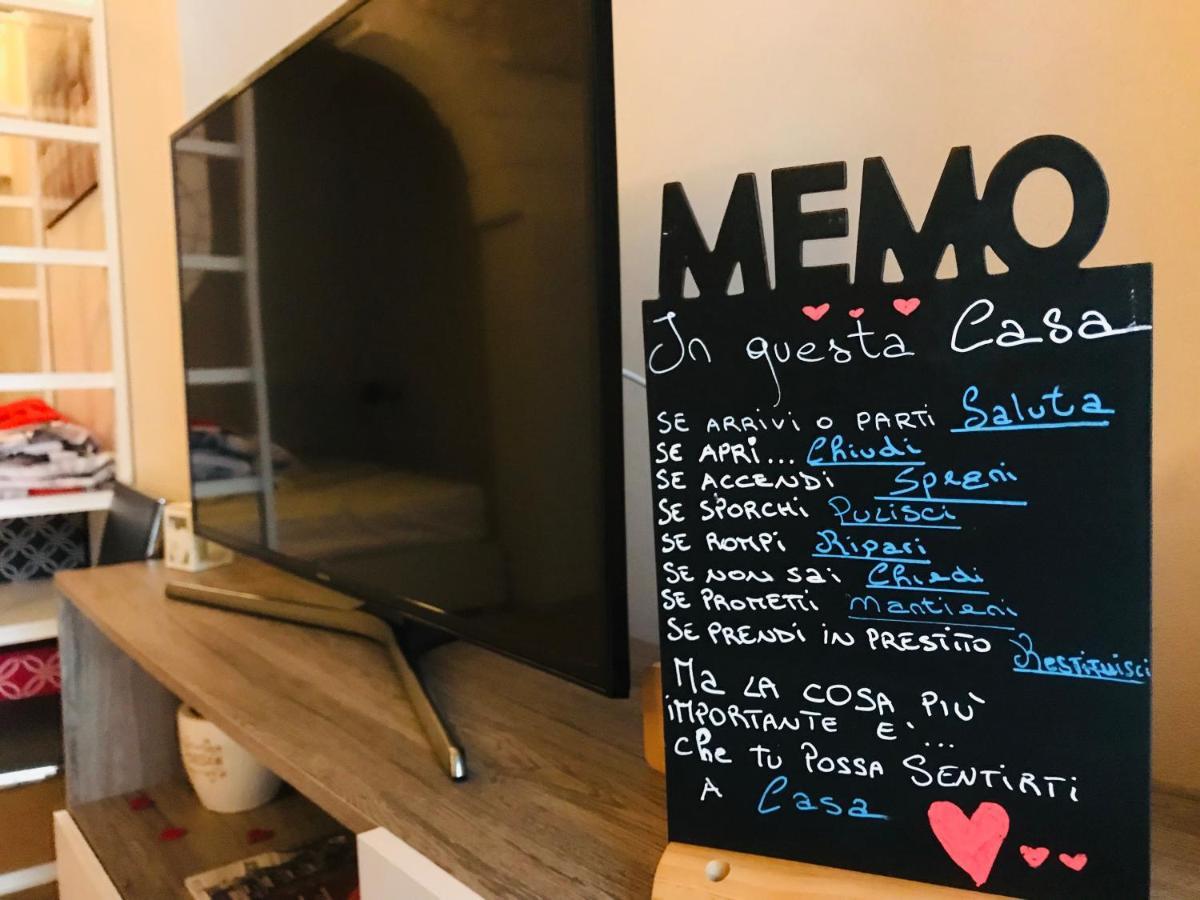 MEMO
In questa Casa
SE ARRIVI O PARTI Saluta
SE APRI... Chiudi
SE ACCENDI Spegni
SE SPORCHI Pulisci
SE ROMPI Ripari
SE NON SAI Chiedi
SE PROMETTI Mantieni
SE PRENDI IN PRESTITO Restituisci
Ma LA COSA PIÙ
IMPORTANTE E'...
Che TU POSSA SENTIRTI
A Casa